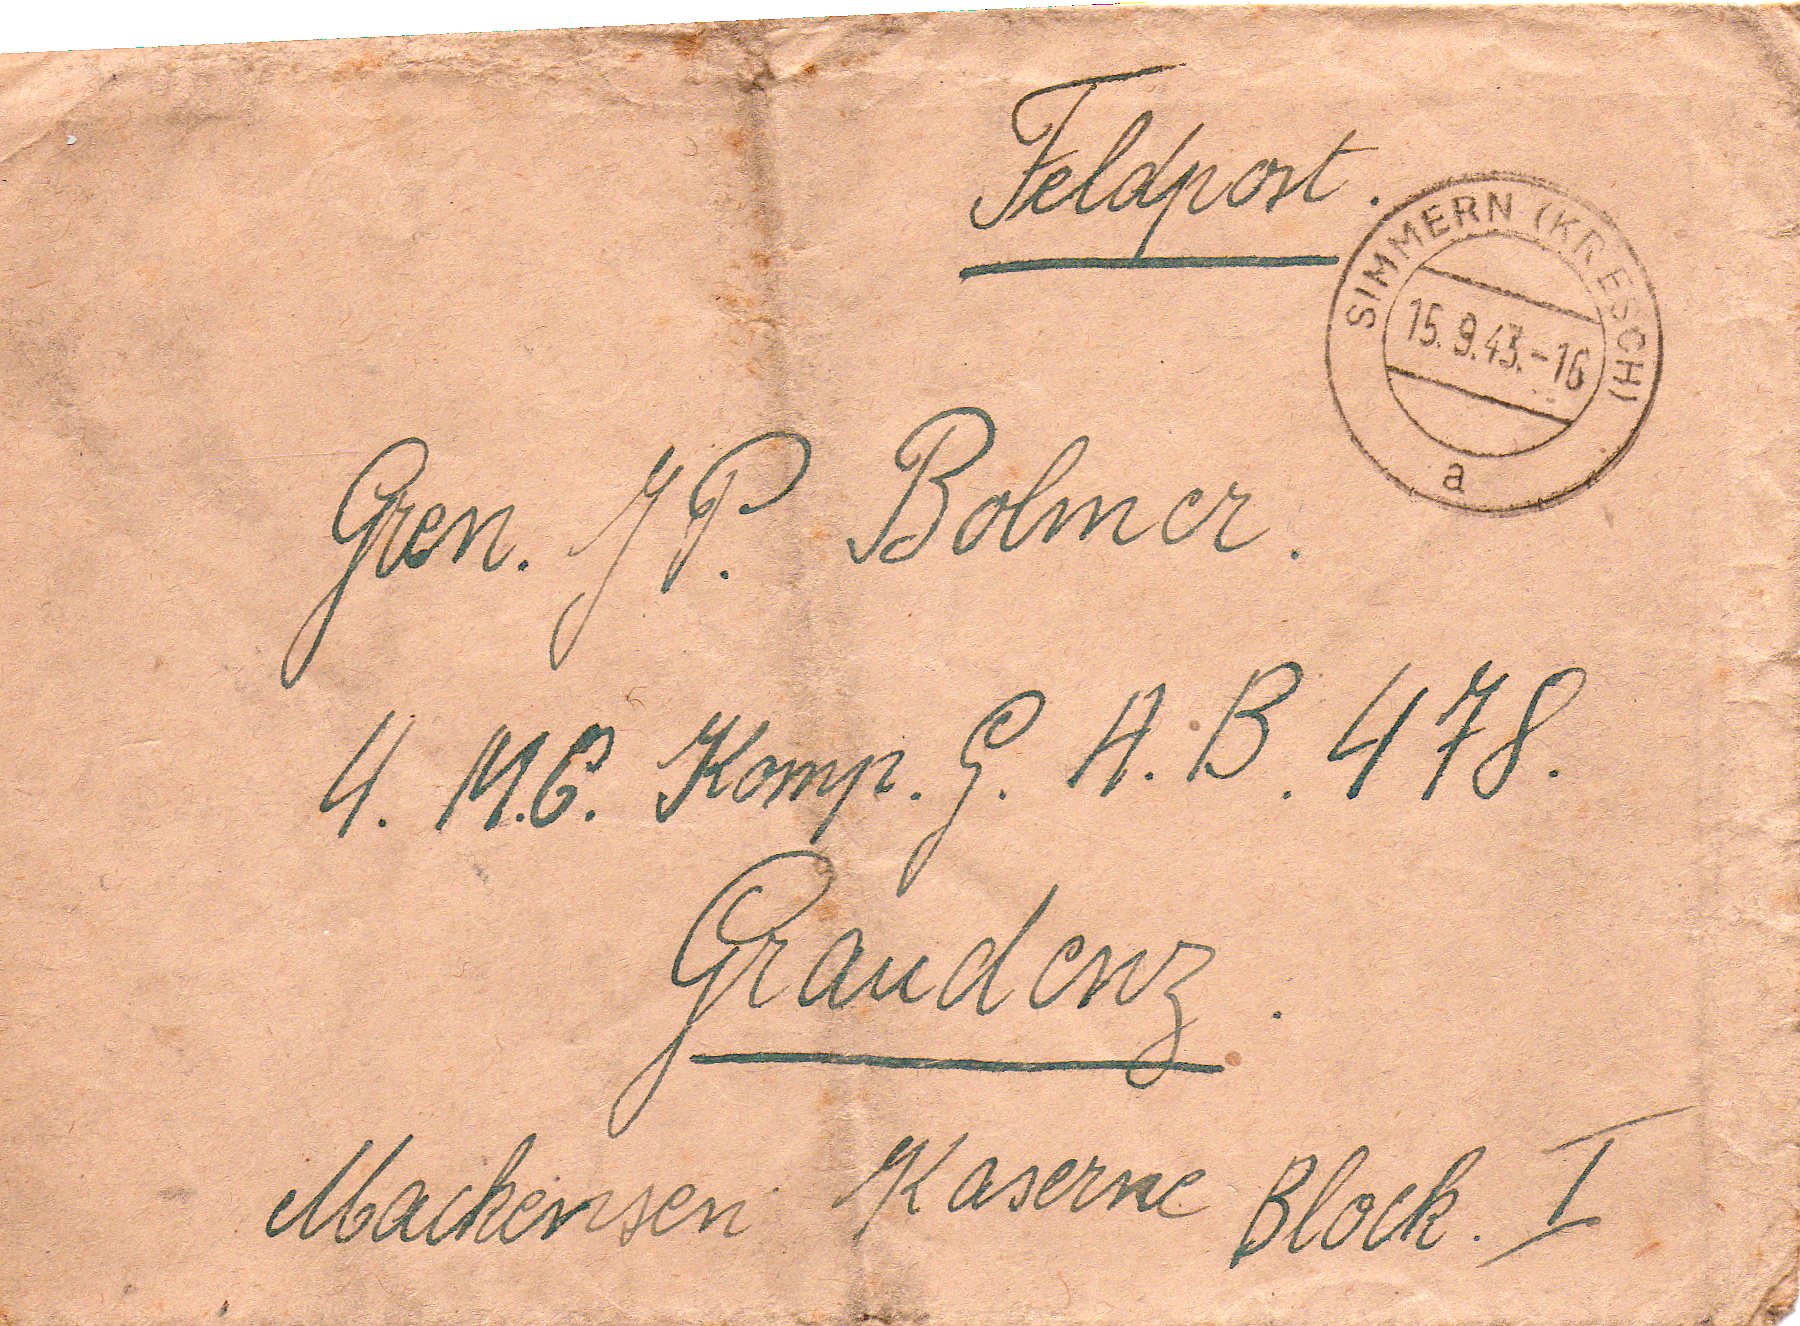 Feldpost.
SIMMERN (KR ESCH)
15.9.43.-16
a
Gren. J P. Bolmer.
4. M.G. Komp. G. A. B. 478.
Graudenz.
Mackensen Kaserne Block. I